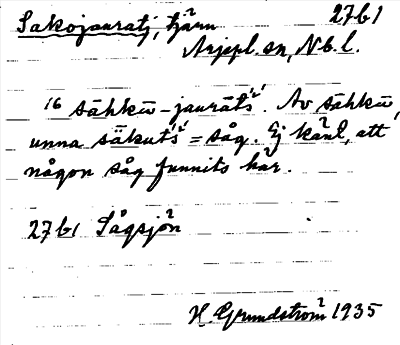 27b1
Sakojauratj, tjärn
Arjepl. sn, Nb. l.
16 sähkū-jaurāts'. Av sähkū,
unna säkuts' = såg. Ej känt, att
någon såg funnits här.
27b1 Sågsjön
H. Grundström 1935